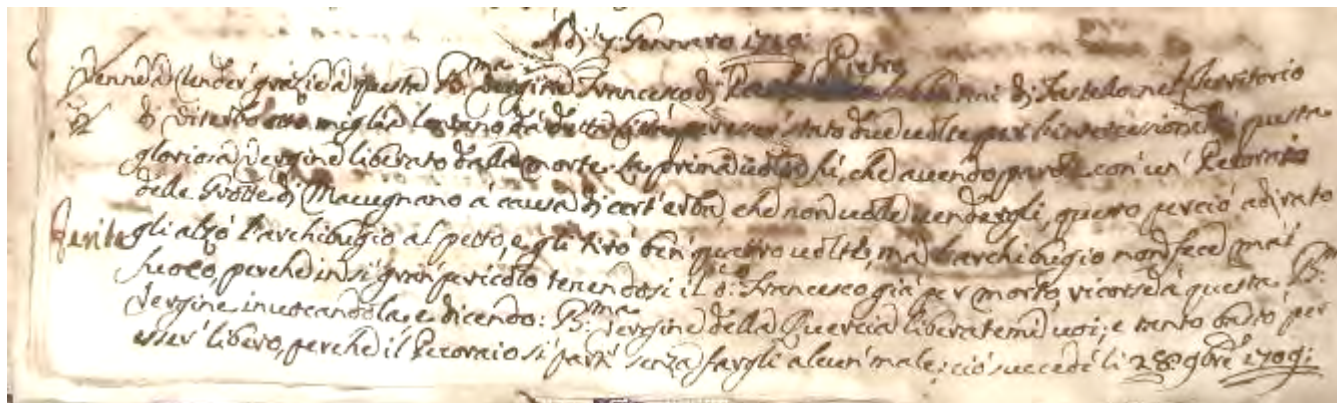 Adi 7 Gennaro 1710:
Pietro
Venne à render' grazie à questa B.ma Vergine Francesco di di Fastello nel Territorio
di Viterbo otto miglia lontano da detta Città per esser' stato due volte per l'intercessione di questa
gloriosa Vergine liberato dalla morte. La prima volta fù, che avendo parole con' un' Pecoraio
delle Grotte di Macugnano à causa di cert'erba, che non volle vendergli, questo perciò adirato
ferite gli alzò l'archibugio al petto, e gli tirò ben' quattro volte, mà l'archibugio non fece mai
fuoco, perche in sì gran' pericolo tenendosi il d.o Francesco già per morto, ricorse à questa B.ma
Vergine invocandola, e dicendo: B.ma Vergine della Quercia liberatemi voi; e tanto bastò per
esser' libero, perche il Pecoraio si partì senza fargli alcun' male; ciò succedè li 28: 9bre 1709: